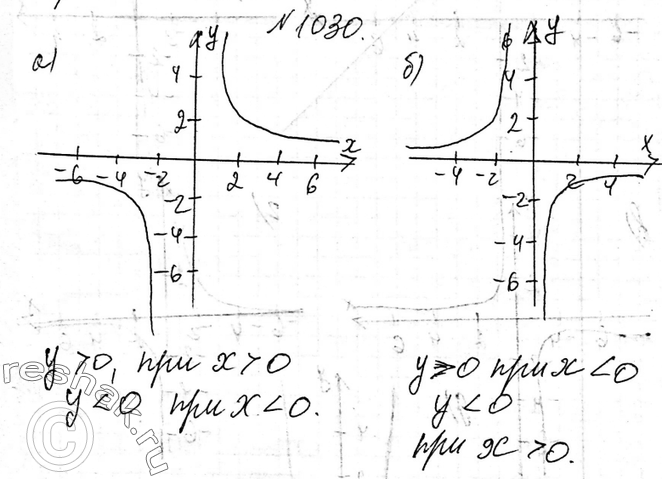 N 1030.
а) y
б) y
4
4
2
2
x
x
-6 -4 -2 2 4 6
-4 -2 2 4
-2
-2
-4
-4
-6
-6
y > 0, при x > 0
y < 0 при x < 0.
y > 0 при x < 0
y < 0
при x > 0.